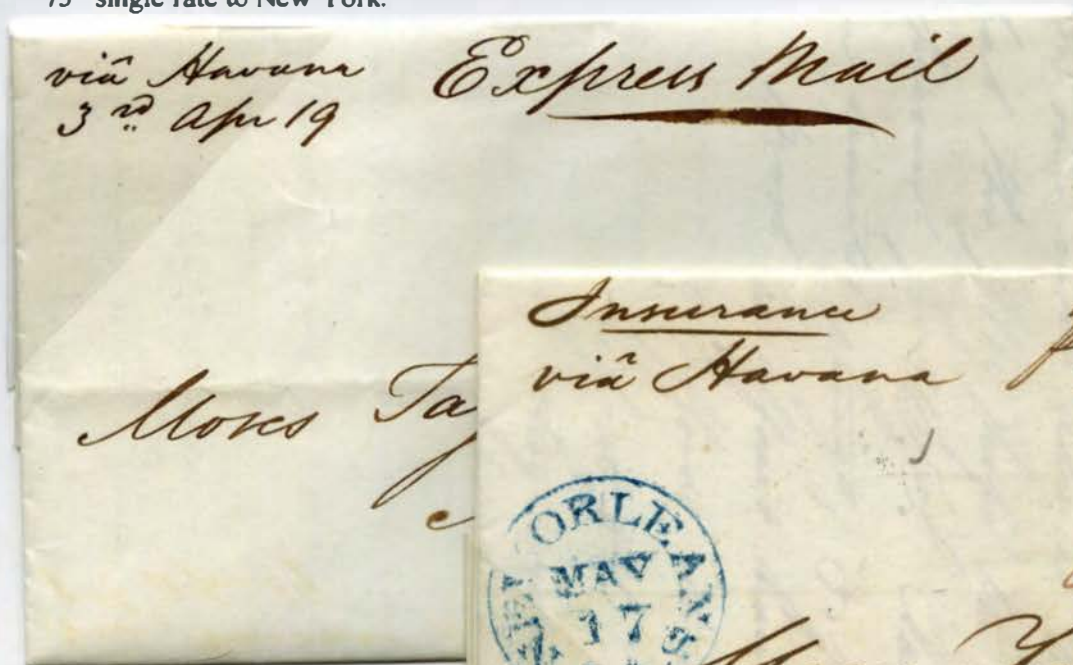 75 single rate to New York.
viâ Havana
3rd Apr 19
Express Mail
Moses Ta
Insurance
viâ Havana
NEW ORLEANS
MAY
17